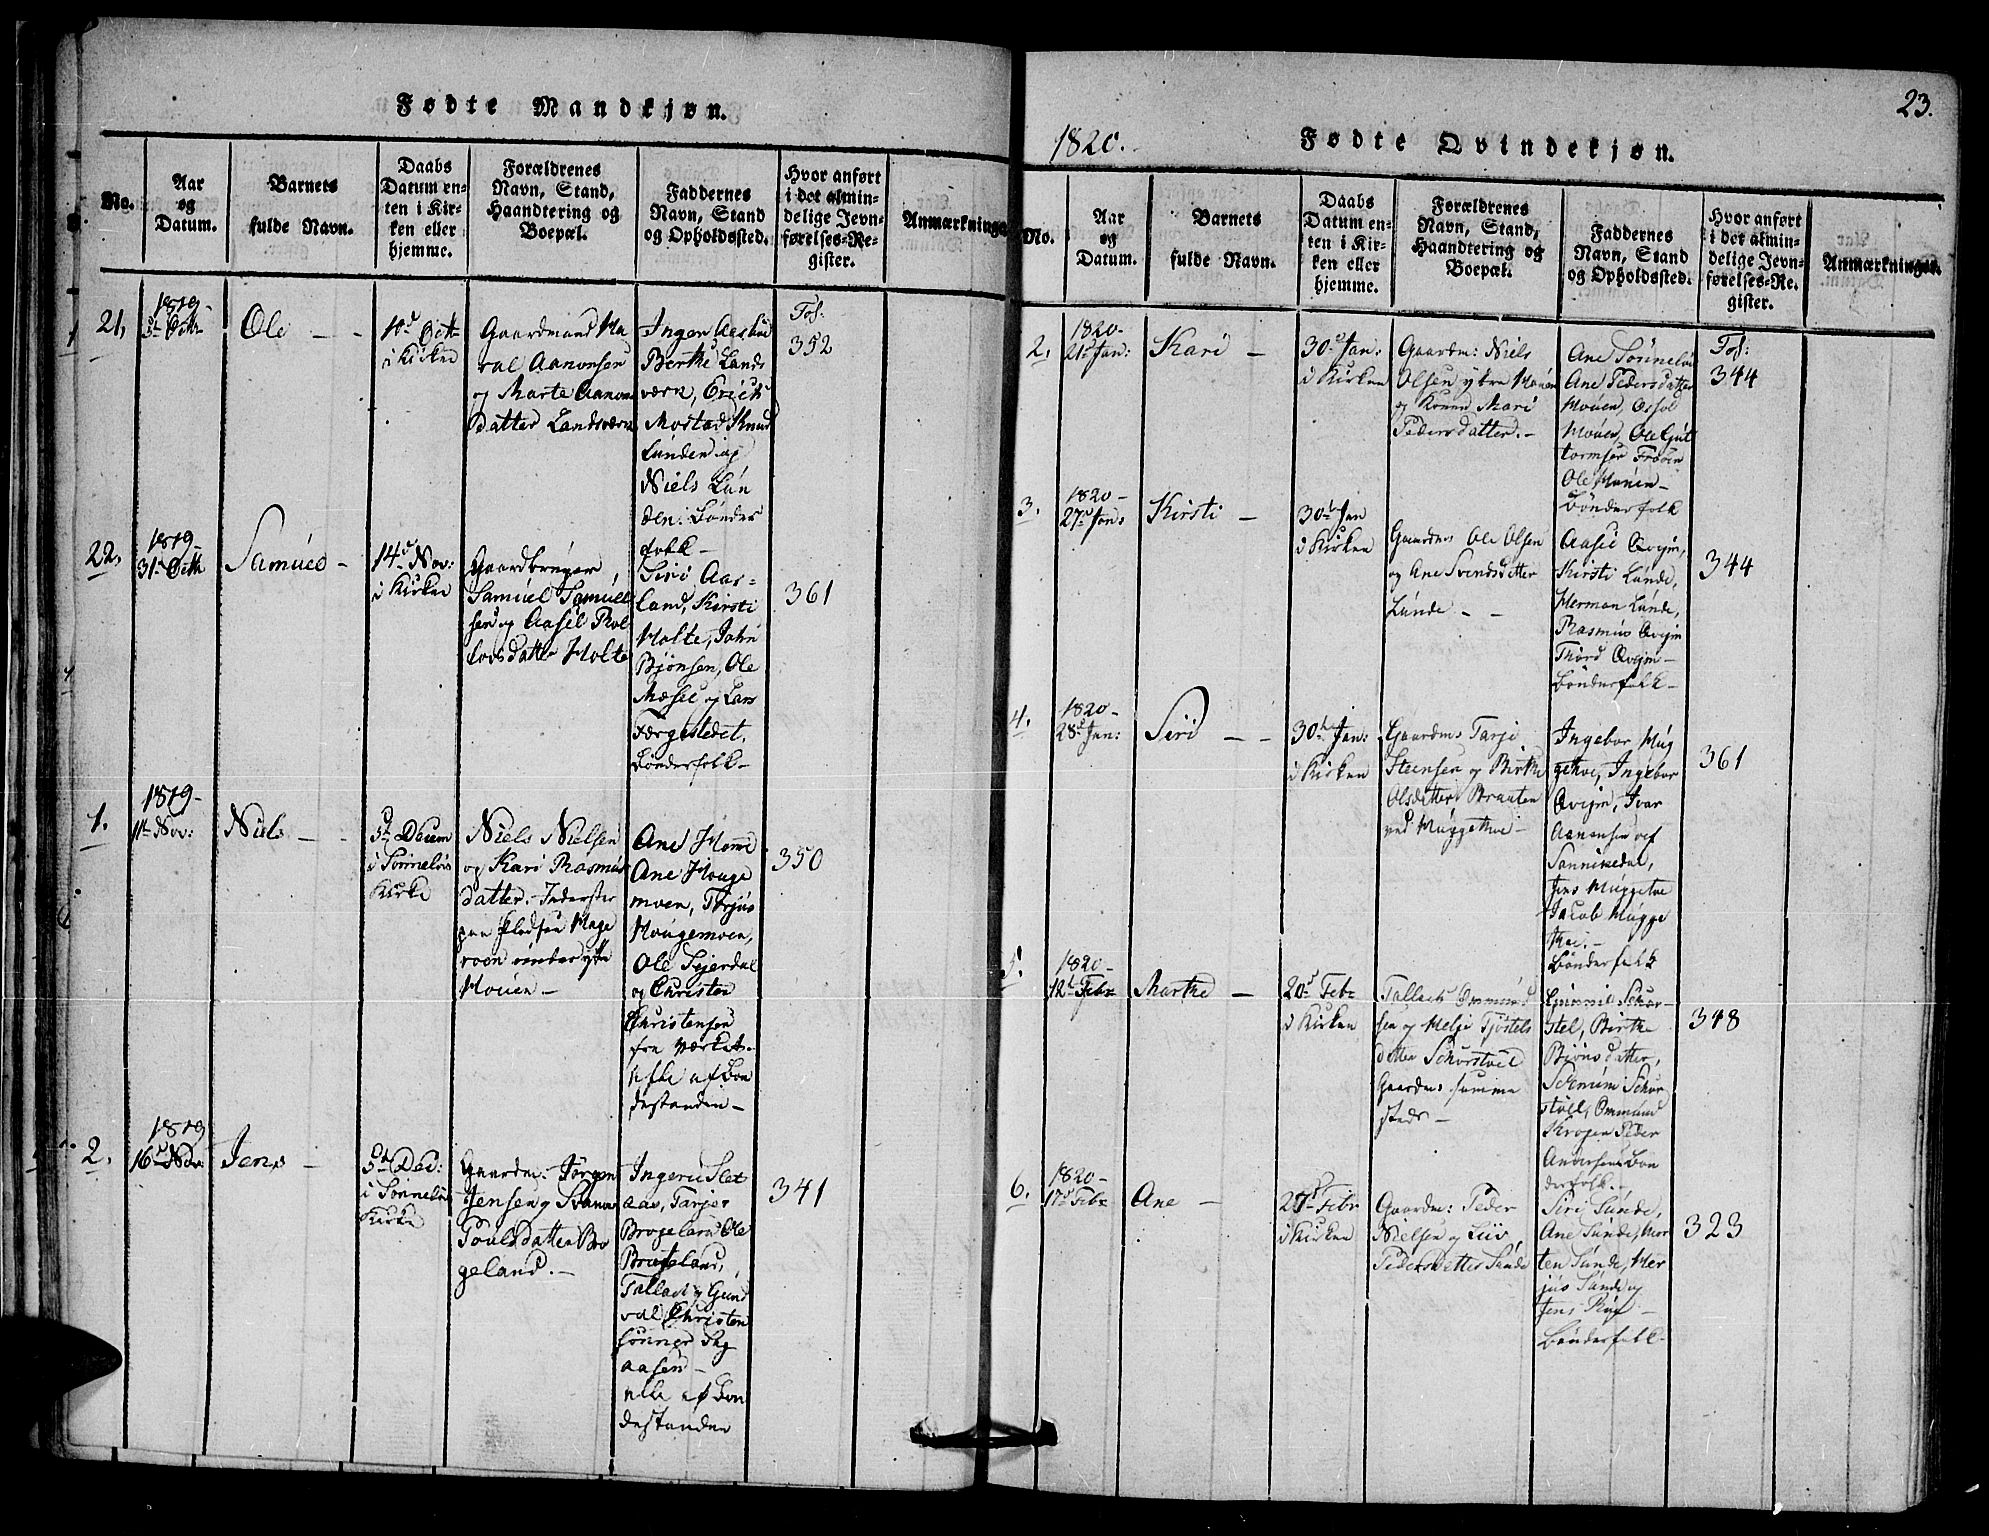 Fødte Mandkjøn.
No.
Aar
og
Datum.
Barnets
fulde Navn.
Daabs
Datum en-
ten i Kir-
ken eller
hjemme.
Forældrenes
Navn, Stand,
Haandtering og
Boepæl.
Faddernes
Navn, Stand
og Opholdssted.
Hvor anført
i det almin-
delige Jevn-
førelses-Re-
gister.
Anmærkninge
21,
1819-
Octb
Ole -
Octb
i Kirken
Gaardmand
Aanonsen
og Marte Aanons
datter Landsværn
Berthe Lands
værn, Erick
Mostad Knud
Lunden
Niels Lun
den: Bønder
folk -
Fol:
352
22,
1819-
31 Octb
Samuel -
14d Nov:
i Kirken
Gaardbruger
Samuel Samuel
sen og Aasel
datter Holte
Siri Aas-
land, Kirsti
Holte, John
Bjønsen, Ole
Mæsel og Lars
Færgestedet,
Bønderfolk -
361
1.
1819-
11te Nov:
Niels -
5te Decem
i Tønneløs
Kirke
Niels Nielsen
og Kari Rasmus
datter. Inderster
paa Pladsen Hage
roen under ytre
Mouen -
Ane Homme
Ane Houge
moen, Terjus
Hougemoen,
Ole Tejerdal
og Christen
Christensen
fra Værket.
alle af Bon
destanden -
350
2.
1819
16d Nov
Jens -
5te Dec:
i Tønneløs
Kirke
Gaardm: Jørgen
Jensen og
Povlsdatter Bro
geland. -
Ingeru Slet
aas, Tarjer
Brogeland Ole
Brogeland,
Tallack og Gund
val Christen
sønner
aasen -
alle af Bon
destanden
341
23.
1820.
Fødte Qvindekjøn.
No.
Aar
og
Datum.
Barnets
fulde Navn.
Daabs
Datum en-
ten i Kir-
ken eller
hjemme.
Forældrenes
Navn, Stand,
Haandtering og
Boepæl.
Faddernes
Navn, Stand
og Opholdssted.
Hvor anført
i det almin-
delige Jevn-
førelses-Re-
gister.
Anmærkninger.
2.
1820-
21d Jan:
Kari -
30d Jan:
i Kirken
Gaardm: Niels
Olsen ytre Mouen
og Konen Mari
Pedersdatter. -
Ane Tønneløs
Ane Pedersdatter
Mouen, Assol
Mouen, Ole Gut
tormsen Frøøen
Ole Mouen -
Bønderfolk
Fol:
344
3.
1820-
27d Jan:
Kirsti -
30d Jan
i Kirken
Gaardm: Ole Olsen
og Ane Svendsdatter
Lunde - -
Aasel Qvejm,
Kirsti Lunde,
Herman Lunde,
Rasmus Qvejm
Thord Qvejm -
Bønderfolk -
344
4.
1820-
28d Jan:
Siri - -
30d Jan:
i Kirken
Gaardm: Tarje
Steensen og Birthe
Olsdatter Braaten
ved Muggethve -
Ingebor Mug
gethve, Ingebor
Qvejm, Ivar
Aanonsen af
Sannikedal,
Jens Muggetve
Jacob Mugge
tve. -
Bønderfolk
361
5.
1820-
12d Febr
Marthe -
20d Febr
i Kirken
Tallack Ommund
sen og Helje Tjøstels
datter Schorstøel
Gaardm: samme
steds -
Gunnil Schor-
støl, Birthe
Bjønsdatter,
Schor
støll, Ommund
Krogen Peder
Andersen: Bon
derfolk. -
348
6.
1820-
17d Febr
Ane -
27d Febr
i Kirken
Gaardm: Peder
Nielsen og Liv
Pedersdatter Sunde
Siri Sunde,
Ane Sunde, Mor
ten Sunde, Mer
jus Sunde og
Jens -
Bønderfolk -
323